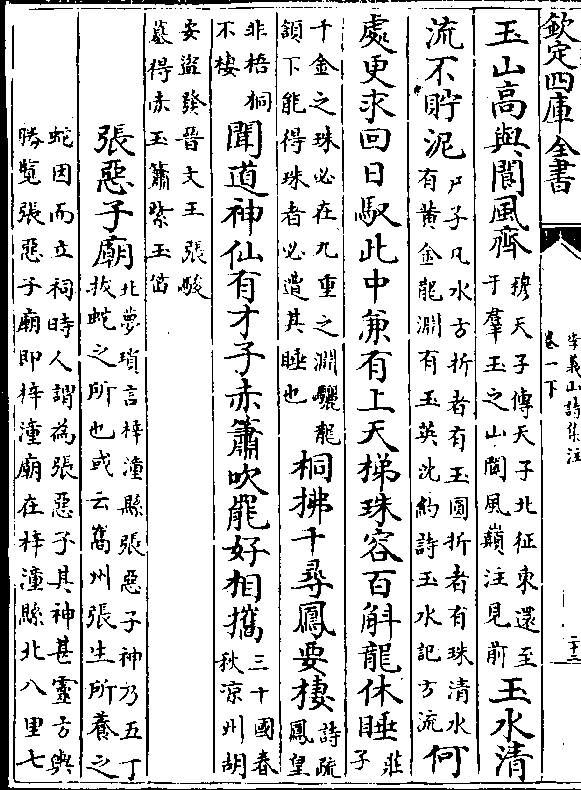 欽定四庫全書
李義山詩集注
卷一下
二十三
玉山高與閬風齊穆天子傳天子北征東還至于羣玉之山閬風巔注見前玉水清
流不貯泥尸子凡水方折者有玉圓折者有珠清水有黄金龍淵有玉英沈約詩玉水記方流何
處更求回日馭此中兼有上天梯珠容百斛龍休睡莊子
千金之珠必在九重之淵驪龍頷下能得珠者必遭其睡也桐拂千尋鳳要棲詩疏鳳皇
非梧桐不棲聞道神仙有才子赤簫吹罷好相攜三十國春秋凉州胡
安盜發晉文王張駿墓得赤玉簫紫玉笛
張惡子廟北夢瑣言梓潼縣張惡子神乃五丁拔蛇之所也或云嶲州張生所養之
蛇因而立祠時人謂為張惡子其神甚靈方輿勝覽張惡子廟即梓潼廟在梓潼縣北八里七